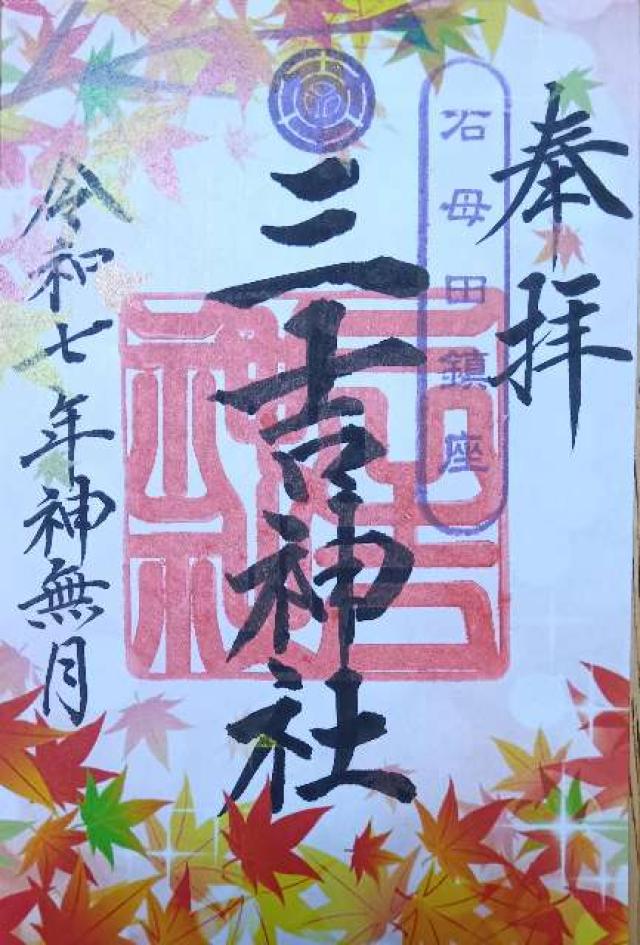 奉拝
石母田鎮座
三吉神社
三吉神社
令和七年神無月